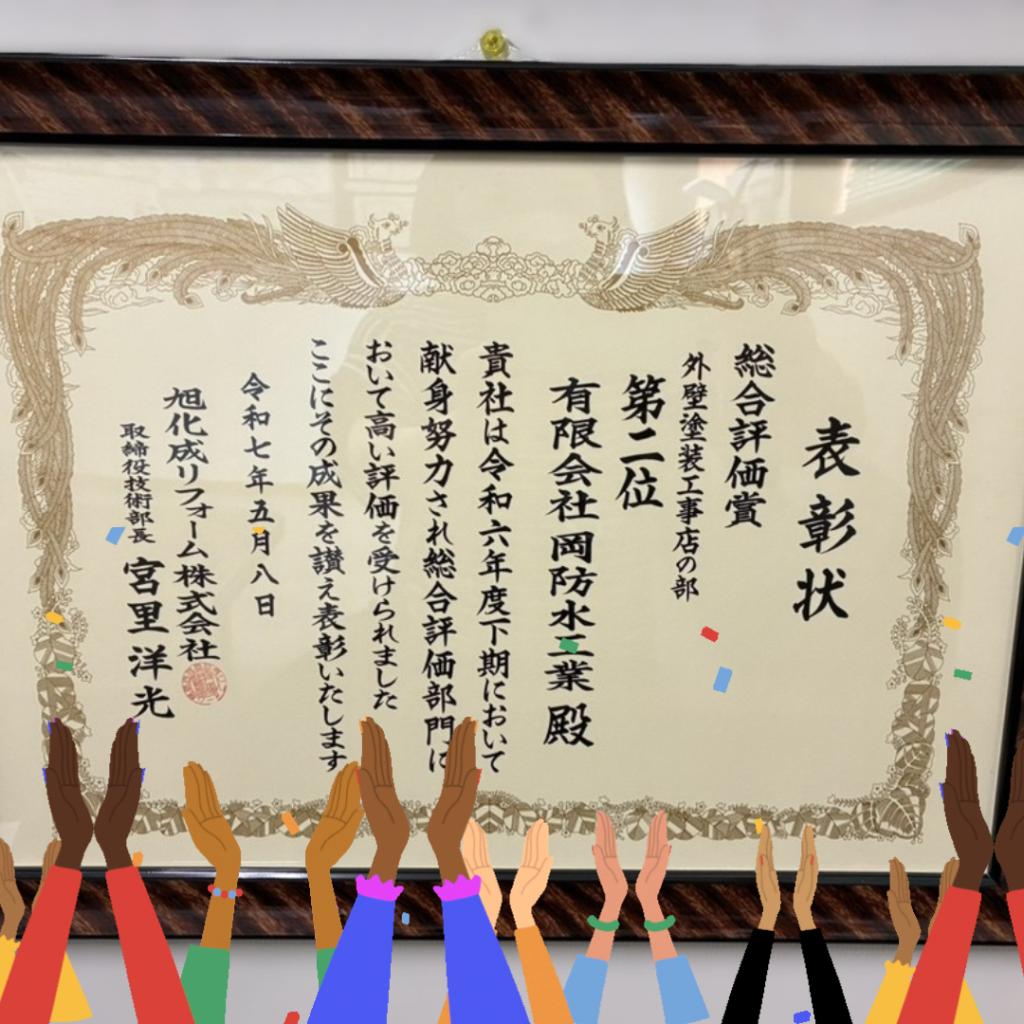 表彰状
総合評価賞
外壁塗装工事店の部
第二位
有限会社岡防水工業殿
貴社は令和六年度下期において
献身努力され総合評価部門に
おいて高い評価を受けられました
ここにその成果を讃え表彰いたします
令和七年五月八日
旭化成リフォーム株式会社
取締役技術部長 宮里洋光